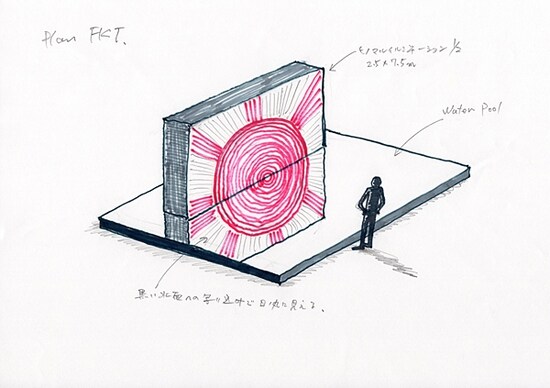 Plan FKT.
ヒノマルイルミネーション 1/2
2.5 x 7.5 m
Water Pool
黒い水面への写り込みで日の丸に見える。